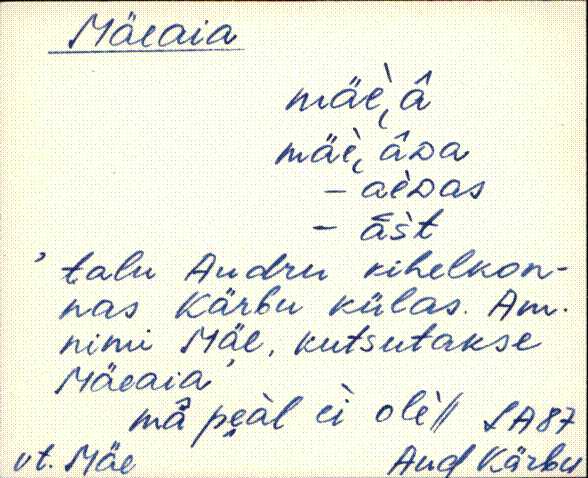 Mäeaia
mäè, â
mäè, âDa
- aèDas
- āšt
' talu Audru kihelkon-
nas Kärbu külas. Am.
nimi Mäe, kutsutakse
Mäeaia'
mā̮ pe̬àl èi olè // LA87
vt. Mäe Aud Kärbu